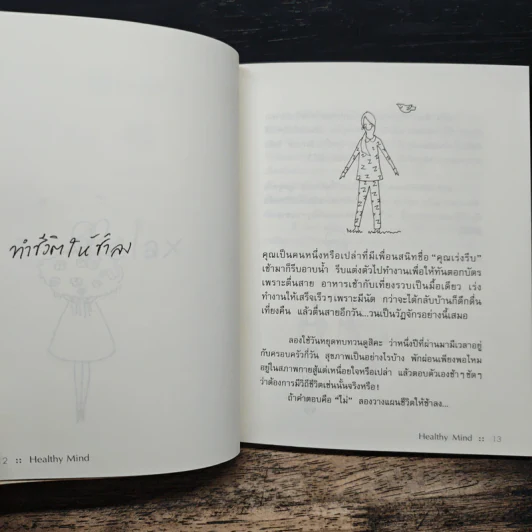 ทำชีวิตให้ช้าลง
2 :: Healthy Mind
คุณเป็นคนหนึ่งหรือเปล่าที่มีเพื่อนสนิทชื่อ “คุณเร่งรีบ”
เช้ามาก็รีบอาบน้ำ รีบแต่งตัวไปทำงานเพื่อให้ทันตอกบัตร
เพราะตื่นสาย อาหารเช้ากับเที่ยงรวบเป็นมื้อเดียว เร่ง
ทำงานให้เสร็จเร็วๆ เพราะมีนัด กว่าจะได้กลับบ้านก็ดึกดื่น
เที่ยงคืน แล้วตื่นสายอีกวัน...วนเป็นวัฏจักรอย่างนี้เสมอ
ลองใช้วันหยุดทบทวนดูสิคะ ว่าหนึ่งปีที่ผ่านมามีเวลาอยู่
กับครอบครัวกี่วัน สุขภาพเป็นอย่างไรบ้าง พักผ่อนเพียงพอไหม
อยู่ในสภาพกายสู้แต่เหนื่อยใจหรือเปล่า แล้วตอบตัวเองช้าๆ ชัดๆ
ว่าต้องการมีวิถีชีวิตเช่นนั้นจริงหรือ!
ถ้าคำตอบคือ “ไม่” ลองวางแผนชีวิตให้ช้าลง...
Healthy Mind :: 13